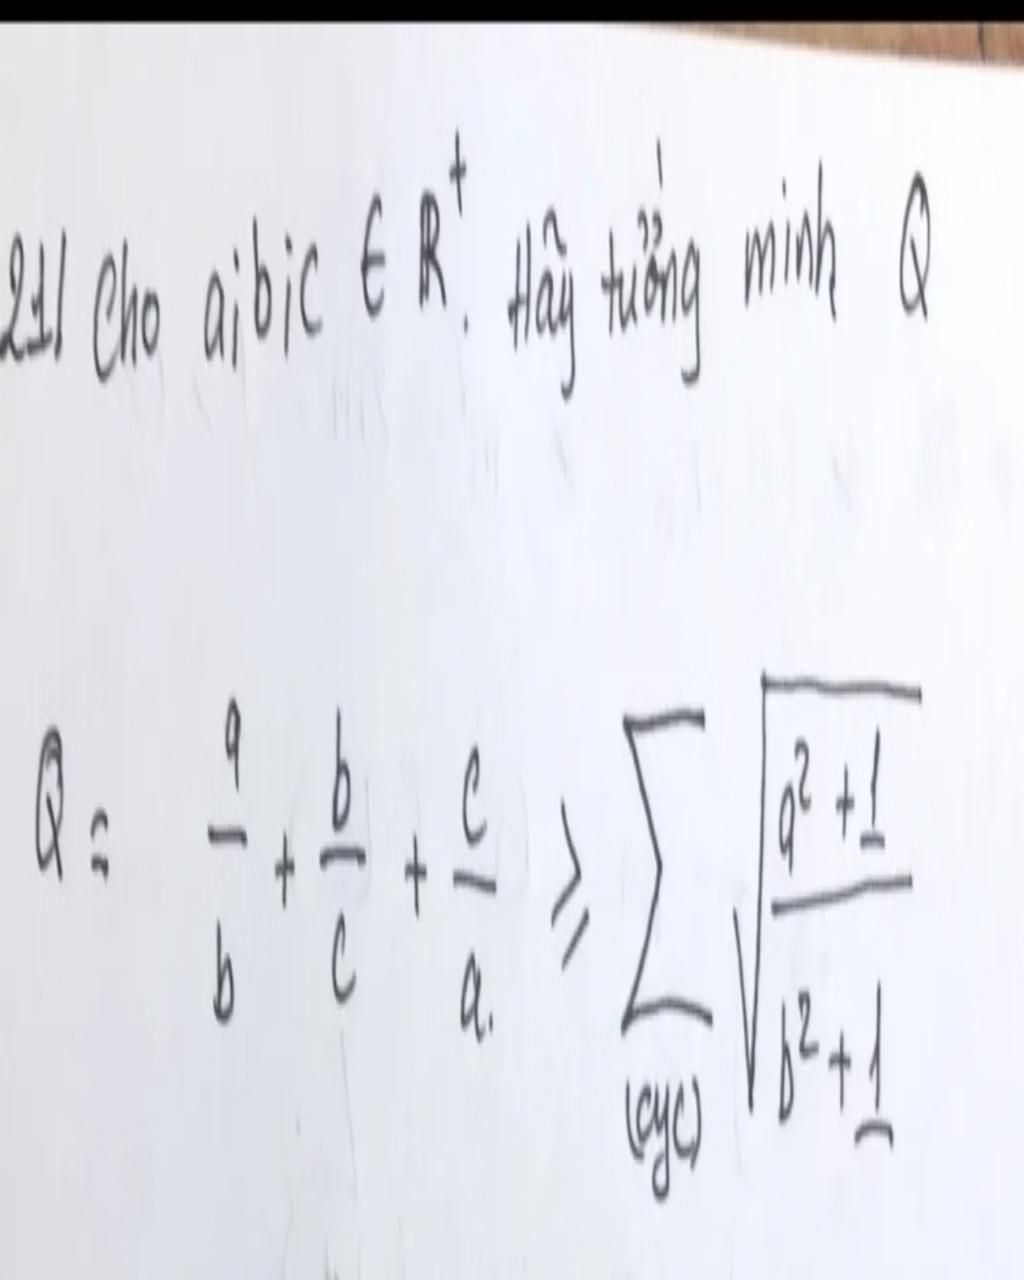 21/ Cho a;b;c ∈ R⁺. Hãy tưởng minh Q
Q = a/b + b/c + c/a. ≥ Σ(cyc) √((a² + 1)/(b² + 1))